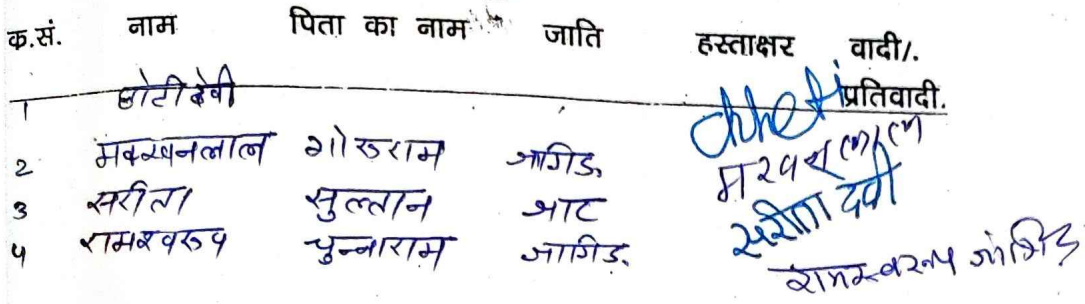 क.सं. नाम पिता का नाम जाति हस्ताक्षर वादी/.
प्रतिवादी.
1 छोटी देवी chheti
2 मक्खनलाल गोरुराम जागिड. मखनलाल
3 सरीता सुल्तान जाट सरीता देवी
4 रामस्वरुप चुन्नाराम जागिड. रामस्वरूप जांगिड